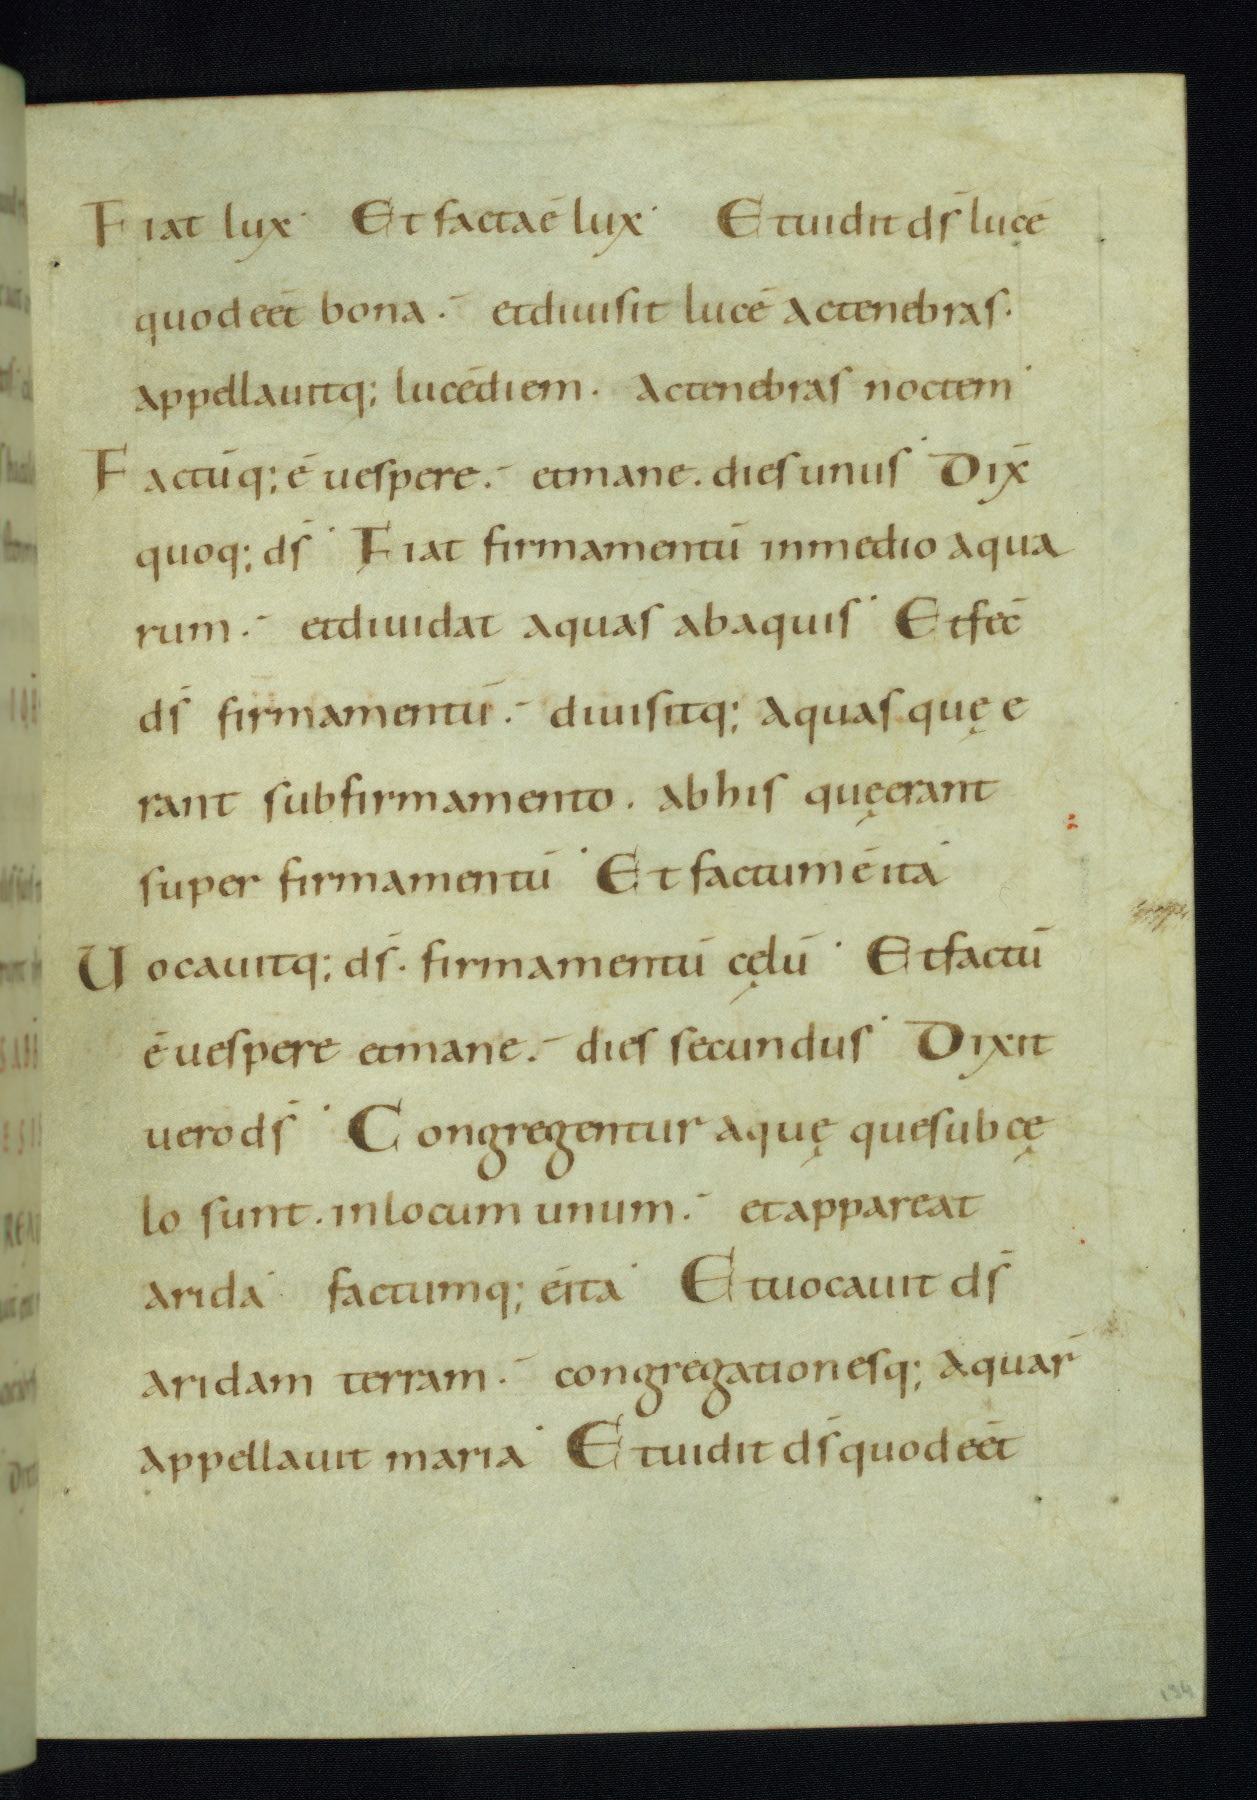 Fiat lux· Et facta ē lux· Et uidit ds̄ lucē
quod eēt bona· et diuisit lucē ac tenebras·
appellauitq; lucē diem· ac tenebras noctem·
Factūq; ē uespere· et mane· dies unus· Dix̄
quoq; ds̄· Fiat firmamentū in medio aqua
rum· et diuidat aquas ab aquis· Et fec̄
ds̄ firmamentū· diuisitq; aquas quę e
rant sub firmamento· ab his quę erant
super firmamentū· Et factum ē ita·
Uocauitq; ds̄· firmamentū cęlū· Et factū
ē uespere et mane· dies secundus· Dixit
uero ds̄· Congregentur aquę que sub cę
lo sunt· in locum unum· et appareat
arida· factumq; ē ita· Et uocauit ds̄
aridam terram· congregationesq; aquar̄
appellauit maria· Et uidit ds̄ quod eēt
194